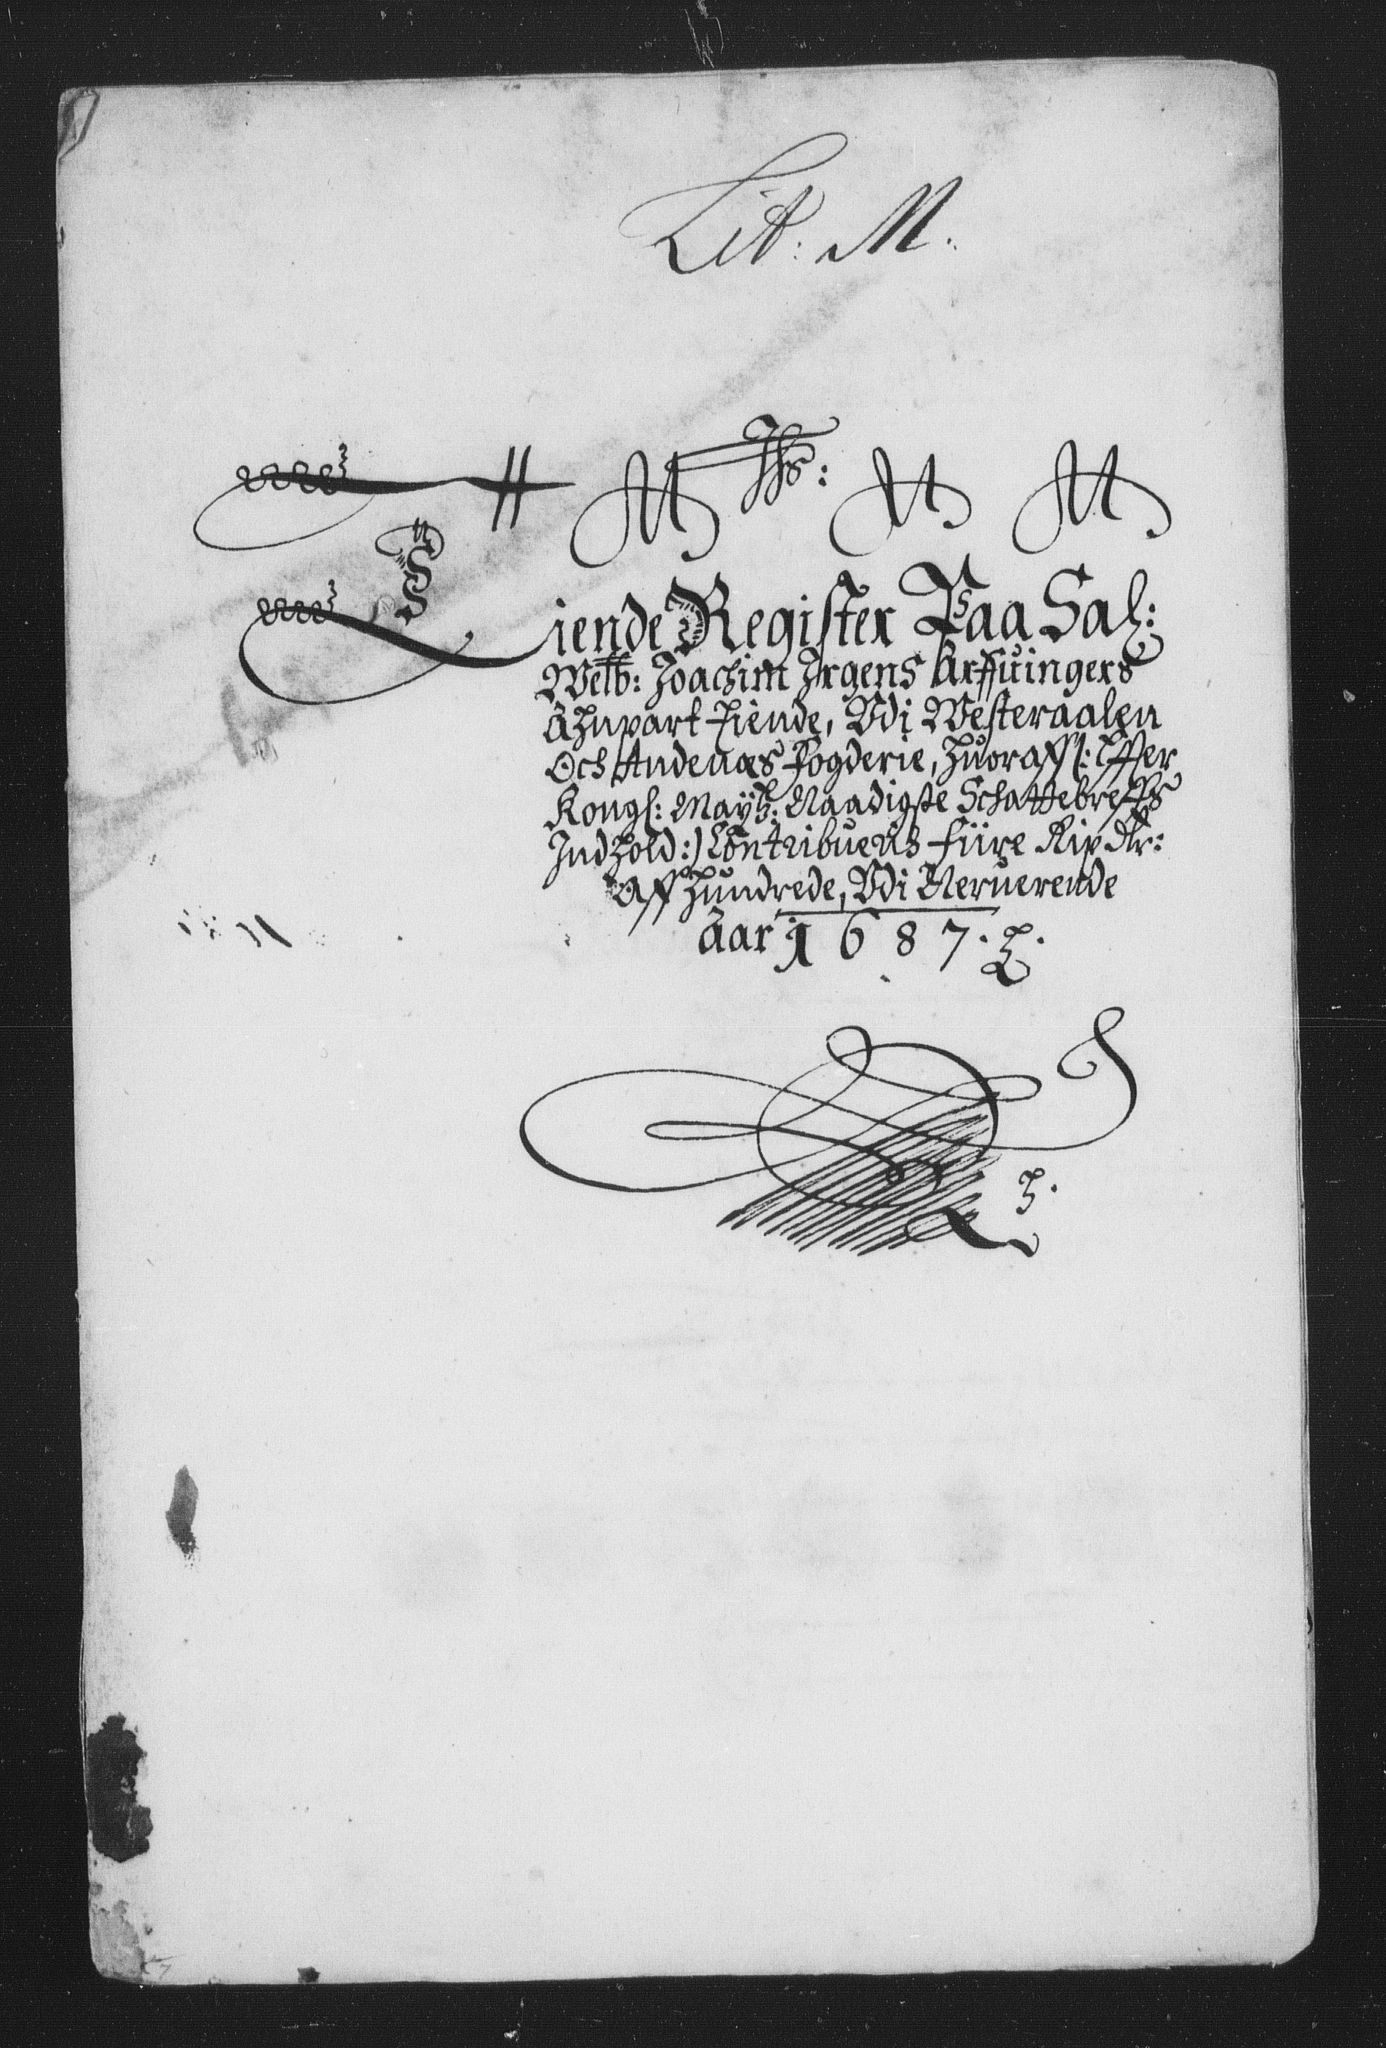 Lit: M.
Jhs:
Tiende Register Paa Sal:
Welb: Joachim Irgens Arffuingers
Anpart Tiende, Vdi Westeraalen
Och Andenæs Fogderie, huoraff (: Effter
Kongl: Mayts: Naadigste Schattebreffs
Indhold :) Contribueris Fiire Rix dlr:
Aff hundrede, Vdi Neruerende
Aar 1687.